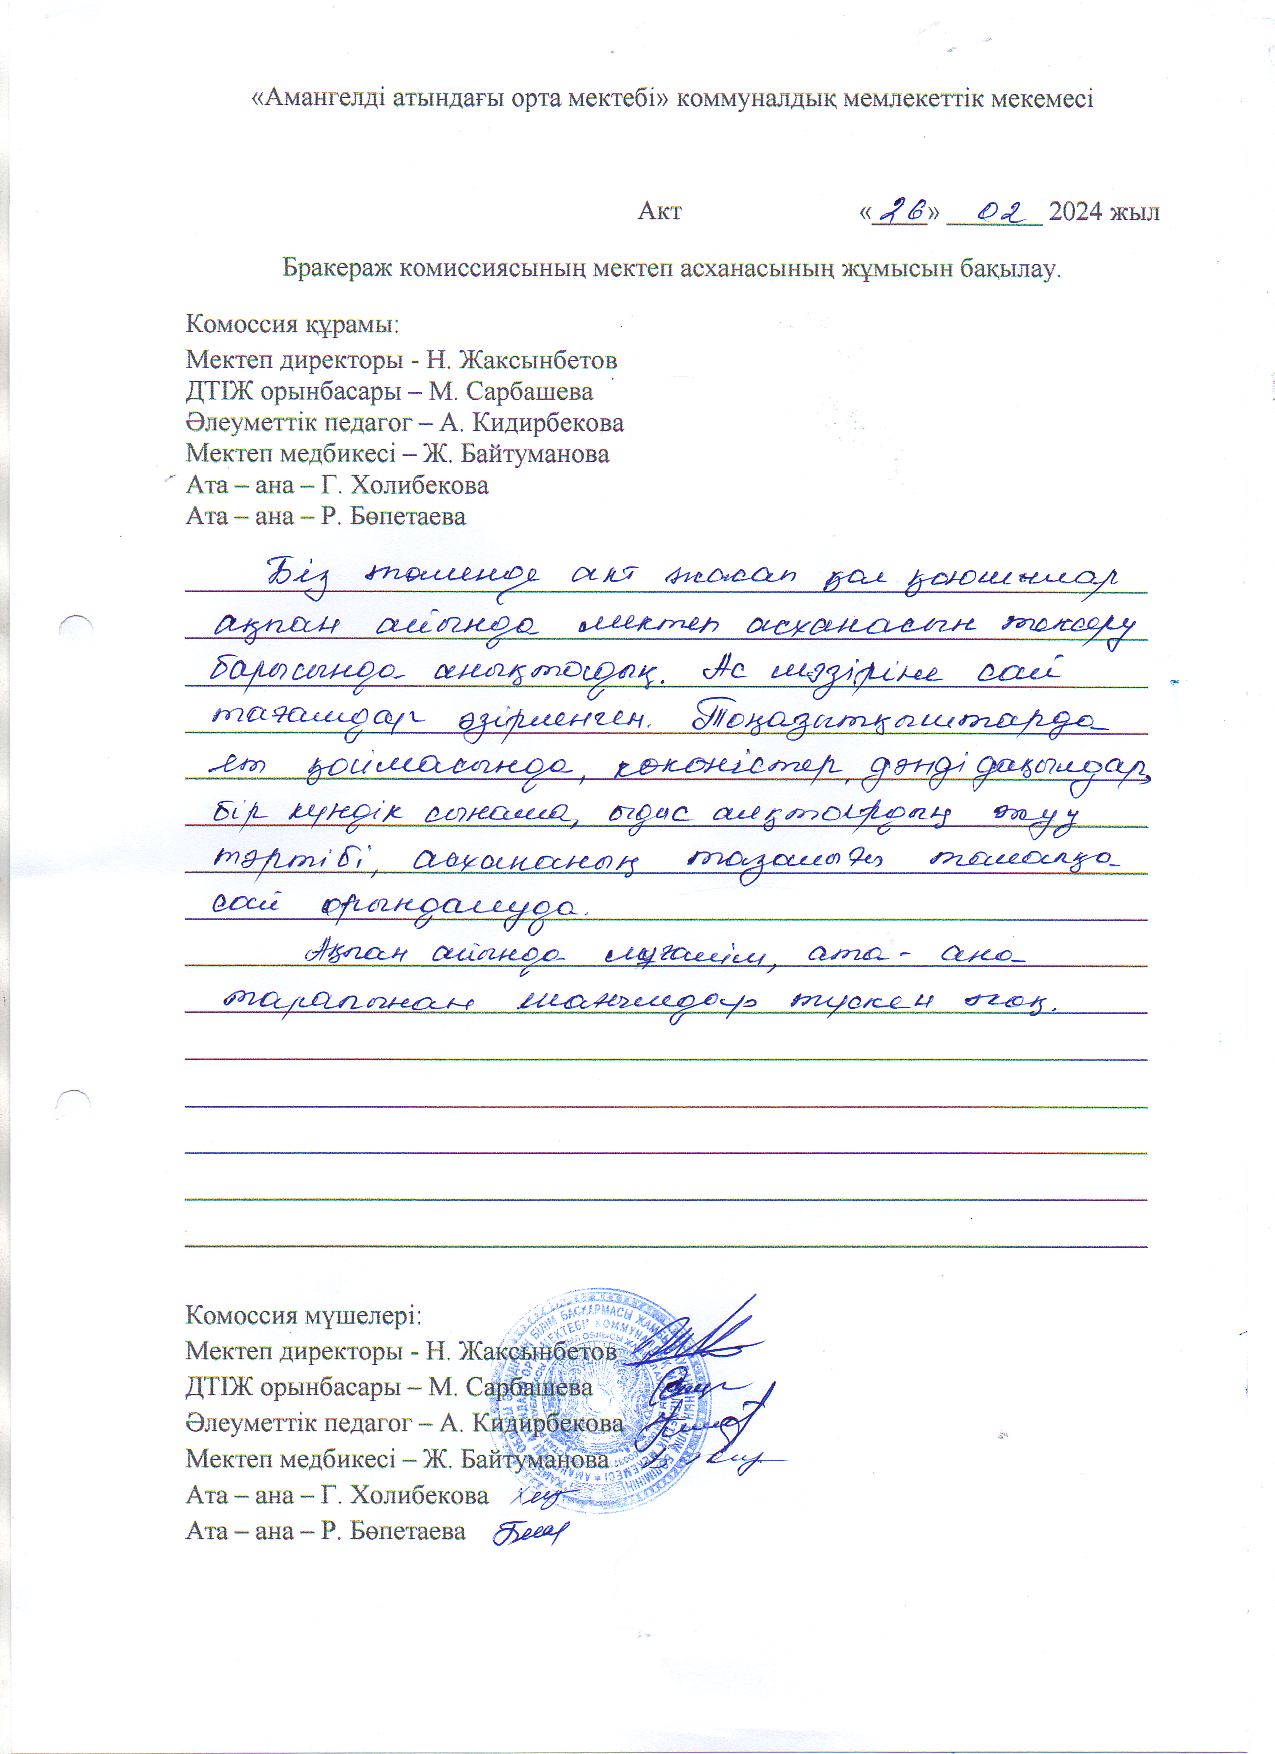 «Амангелді атындағы орта мектебі» коммуналдық мемлекеттік мекемесі
Акт «26» 02 2024 жыл
Бракераж комиссиясының мектеп асханасының жұмысын бақылау.
Комоссия құрамы:
Мектеп директоры - Н. Жаксынбетов
ДТІЖ орынбасары – М. Сарбашева
Әлеуметтік педагог – А. Кидирбекова
Мектеп медбикесі – Ж. Байтуманова
Ата – ана – Г. Холибекова
Ата – ана – Р. Бөпетаева
Біз төменде акт жасап қол қоюшылар
ақпан айында мектеп асханасын тексеру
барысында анықталдық. Ас мәзіріне сай
тағамдар әзірленген. Тоңазытқыштарда
ет қоймасында, көкөністер, дәнді дақылдар,
бір күндік сынама, ыдыс аяқтардың жуу
тәртібі, асхананың тазалығы талапқа
сай орындалуда.
Ақпан айында мұғалім, ата - ана
тарапынан шағымдар түскен жоқ.
Комоссия мүшелері:
Мектеп директоры - Н. Жаксынбетов
ДТІЖ орынбасары – М. Сарбашева
Әлеуметтік педагог – А. Кидирбекова
Мектеп медбикесі – Ж. Байтуманова
Ата – ана – Г. Холибекова
Ата – ана – Р. Бөпетаева